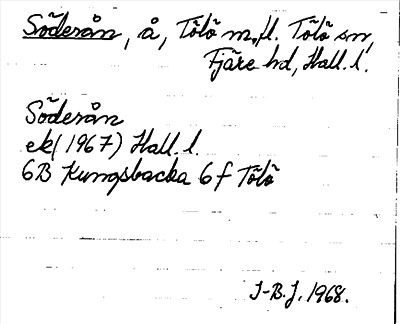 Söderån, å, Tölö m.fl. Tölö sn,
Fjäre hd, Hall. l.
Söderån
ek (1967) Hall. l.
6B Kungsbacka 6 f Tölö
J-B.J. 1968.